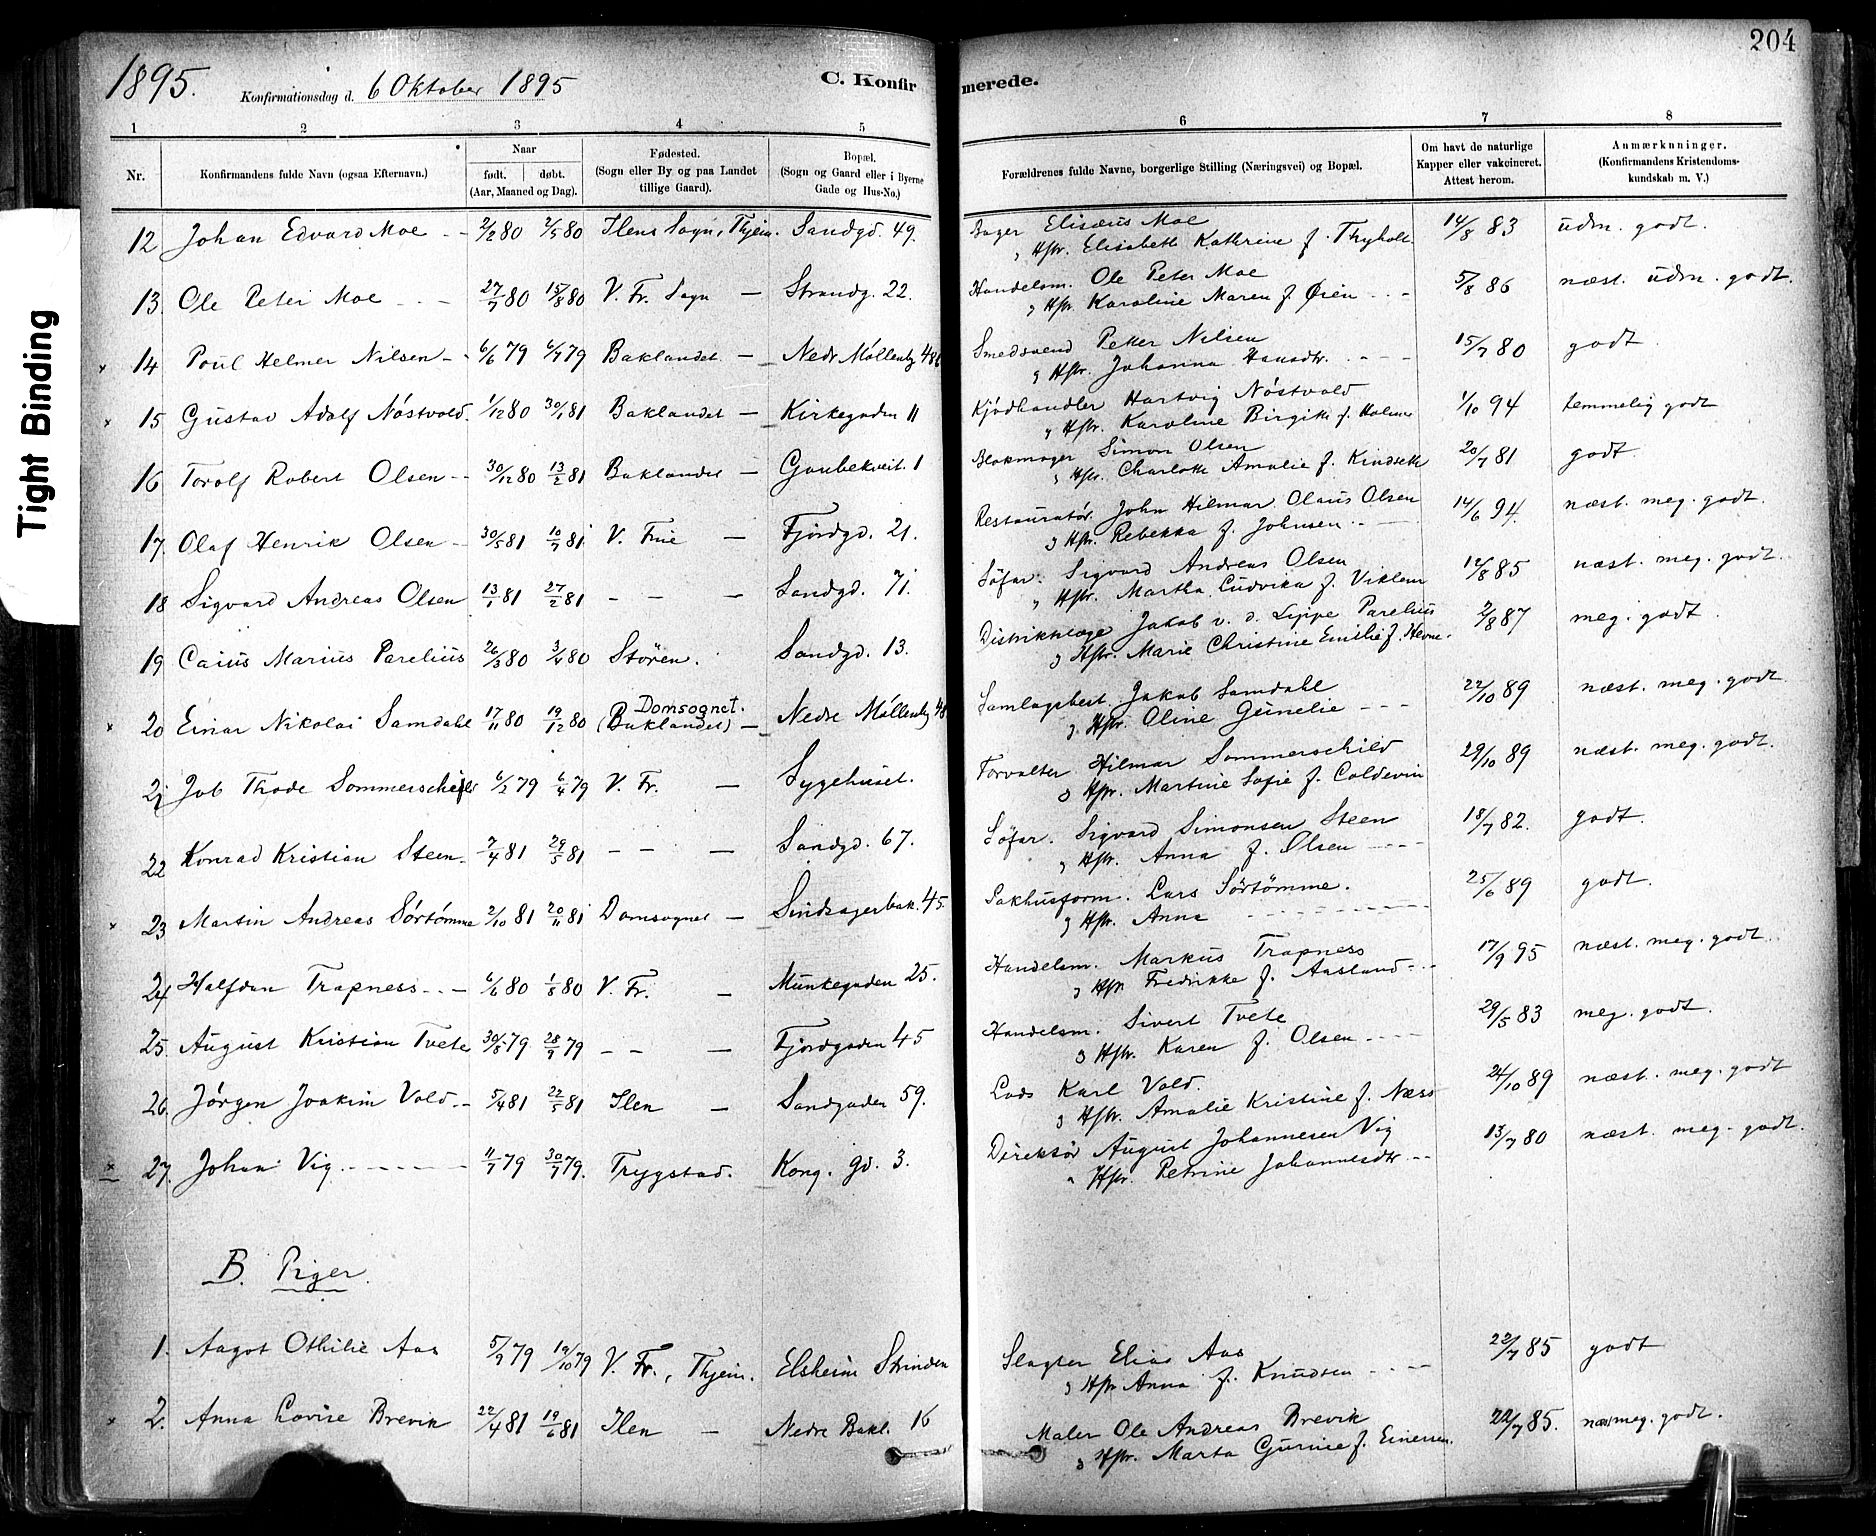 204
1895.
Konfirmationsdag d. 6 Oktober 1895
C. Konfirmerede.
Tight Binding
1 2 3 4 5 6 7 8
Nr.
Konfirmandens fulde Navn (ogsaa Efternavn.)
Naar
født. døbt.
(Aar, Maaned og Dag).
Fødested.
(Sogn eller By og paa Landet
tillige Gaard).
Bopæl.
(Sogn og Gaard eller i Byerne
Gade og Hus-No.)
Forældrenes fulde Navne, borgerlige Stilling (Næringsvei) og Bopæl.
Om havt de naturlige
Kapper eller vakcineret.
Attest herom.
Anmærkninger.
(Konfirmandens Kristendoms-
kundskab m. V.)
12 Johan Edvard Moe - - 2/2 80 2/5 80 Ilens Sogn, Thjem. Sandgd. 49. Bager Elisæus Moe 14/8 83 udm. godt.
" Hstr. Elisabeth Kathrine f. Thyholt
13. Ole Peter Moe - - - 27/7 80 15/8 80 V. Fr. Sogn — Strandg. 22. Handelsm. Ole Peter Moe 5/8 86 næst. udm. godt.
" Hstr. Karoline Maren f. Øien - - -
x 14 Poul Helmer Nilsen - - 6/6 79 6/7 79 Baklandet — Nedr Møllenbg 48 Smedsvend Petter Nilsen 15/7 80 godt
" Hstr. Johanna Hansdtr. - - -
x 15 Gustav Adolf Nöstvold. 1/12 80 30/1 81 Baklandet — Kirkegaden 11 Kjödhandler Hartvig Nöstvold 1/10 94 temmelig godt
" Hstr. Karoline Birgitte f. Holmer
16 Torolf Robert Olsen - - 30/12 80 13/2 81 Baklandet — Gaubekveit. 1 Blokmager Simon Olsen 20/7 81 godt
" Hstr. Charlotte Amalie f. Kindseth
17. Olaf Henrik Olsen - 30/5 81 10/7 81 V. Frue — Fjordgd. 21. Restauratör John Hilmar Olaus Olsen 14/6 94. næst. meg. godt.
" Hstr. Rebekka f. Johnsen - - -
18 Sigvard Andreas Olsen 13/1 81 27/2 81 - - — Sandgd. 71. Söfar. Sigvard Andreas Olsen 12/8 85 næst. meg. godt.
" Hstr. Martha Ludvika f. Viklem
19 Caius Marius Parelius 26/3 80 3/4 80 Stören. Sandgd. 13. Distriktslæge Jakob v. d. Lippe Parelius 2/8 87 meg. godt.
" Hstr. Marie Christine Emilie f. Hevne.
x 20 Einar Nikolai Samdahl 17/11 80 19/12 80 Domsognet. (Baklandet) — Nedre Møllenbg 48 Samlagsbest. Jakob Samdahl 22/10 89 næst. meg. godt
" Hstr. Oline Gunelie - - -
21 Job Thode Sommerschield 6/2 79 6/4 79 V. Fr. — Sygehuset. Forvalter Hilmar Sommerschild 29/10 89 næst. meg. godt.
" Hstr. Martine Sofie f. Coldevin
22 Konrad Kristian Steen. 7/4 81 29/5 81 - - — Sandgd. 67. Söfar. Sigvard Simonsen Steen 18/7 82. godt.
" Hstr. Anna f. Olsen - - -
x 23 Martin Andreas Sörtömme 2/10 81 20/11 81 Domsognet — Sindsagerbak. 45. Pakhusform. Lars Sörtömme. 25/6 89 godt.
" Hstr. Anna - - -
24 Halfdan Trapness - - - 6/6 80 1/8 80 V. Fr. — Munkegaden 25. Handelsm. Markus Trapness 17/9 95 næst. meg. godt.
" Hstr Fredrikke f. Aasland - -
25. August Kristian Tvete 30/8 79 28/9 79 - - — Fjordgaden 45 Handelsm. Sivert Tvete 29/5 83 meg. godt.
" Hstr. Karen f. Olsen - - -
26 Jörgen Joakim Vold - - 5/4 81 22/5 81 Ilen — Sandgaden 59. Lods Karl Vold. 24/10 89 næst. meg. godt
" Hstr. Amalie Kristine f. Næss
x 27. Johan Vig - - - 11/7 79 30/7 79. Trygstad. Kong. gd. 3. Direktör August Johannesen Vig 13/7 80 næst. meg. godt.
" Hstr. Petrine Johannesdtr - -
B. Piger.
1. Aagot Othilie Aas 5/9 79 19/10 79 V. Fr., Thjem. Elsheim Strinden Slagter Elias Aas 22/7 85 godt
" Hstr Anna f. Knudsen - - -
x 2. Anna Lovise Brevik 22/4 81 19/6 81 Ilen — Nedre Bakl. 16 Maler Ole Andreas Brevik 22/7 85. næst meg. godt.
" Hstr. Marta Gurine f. Einersen.